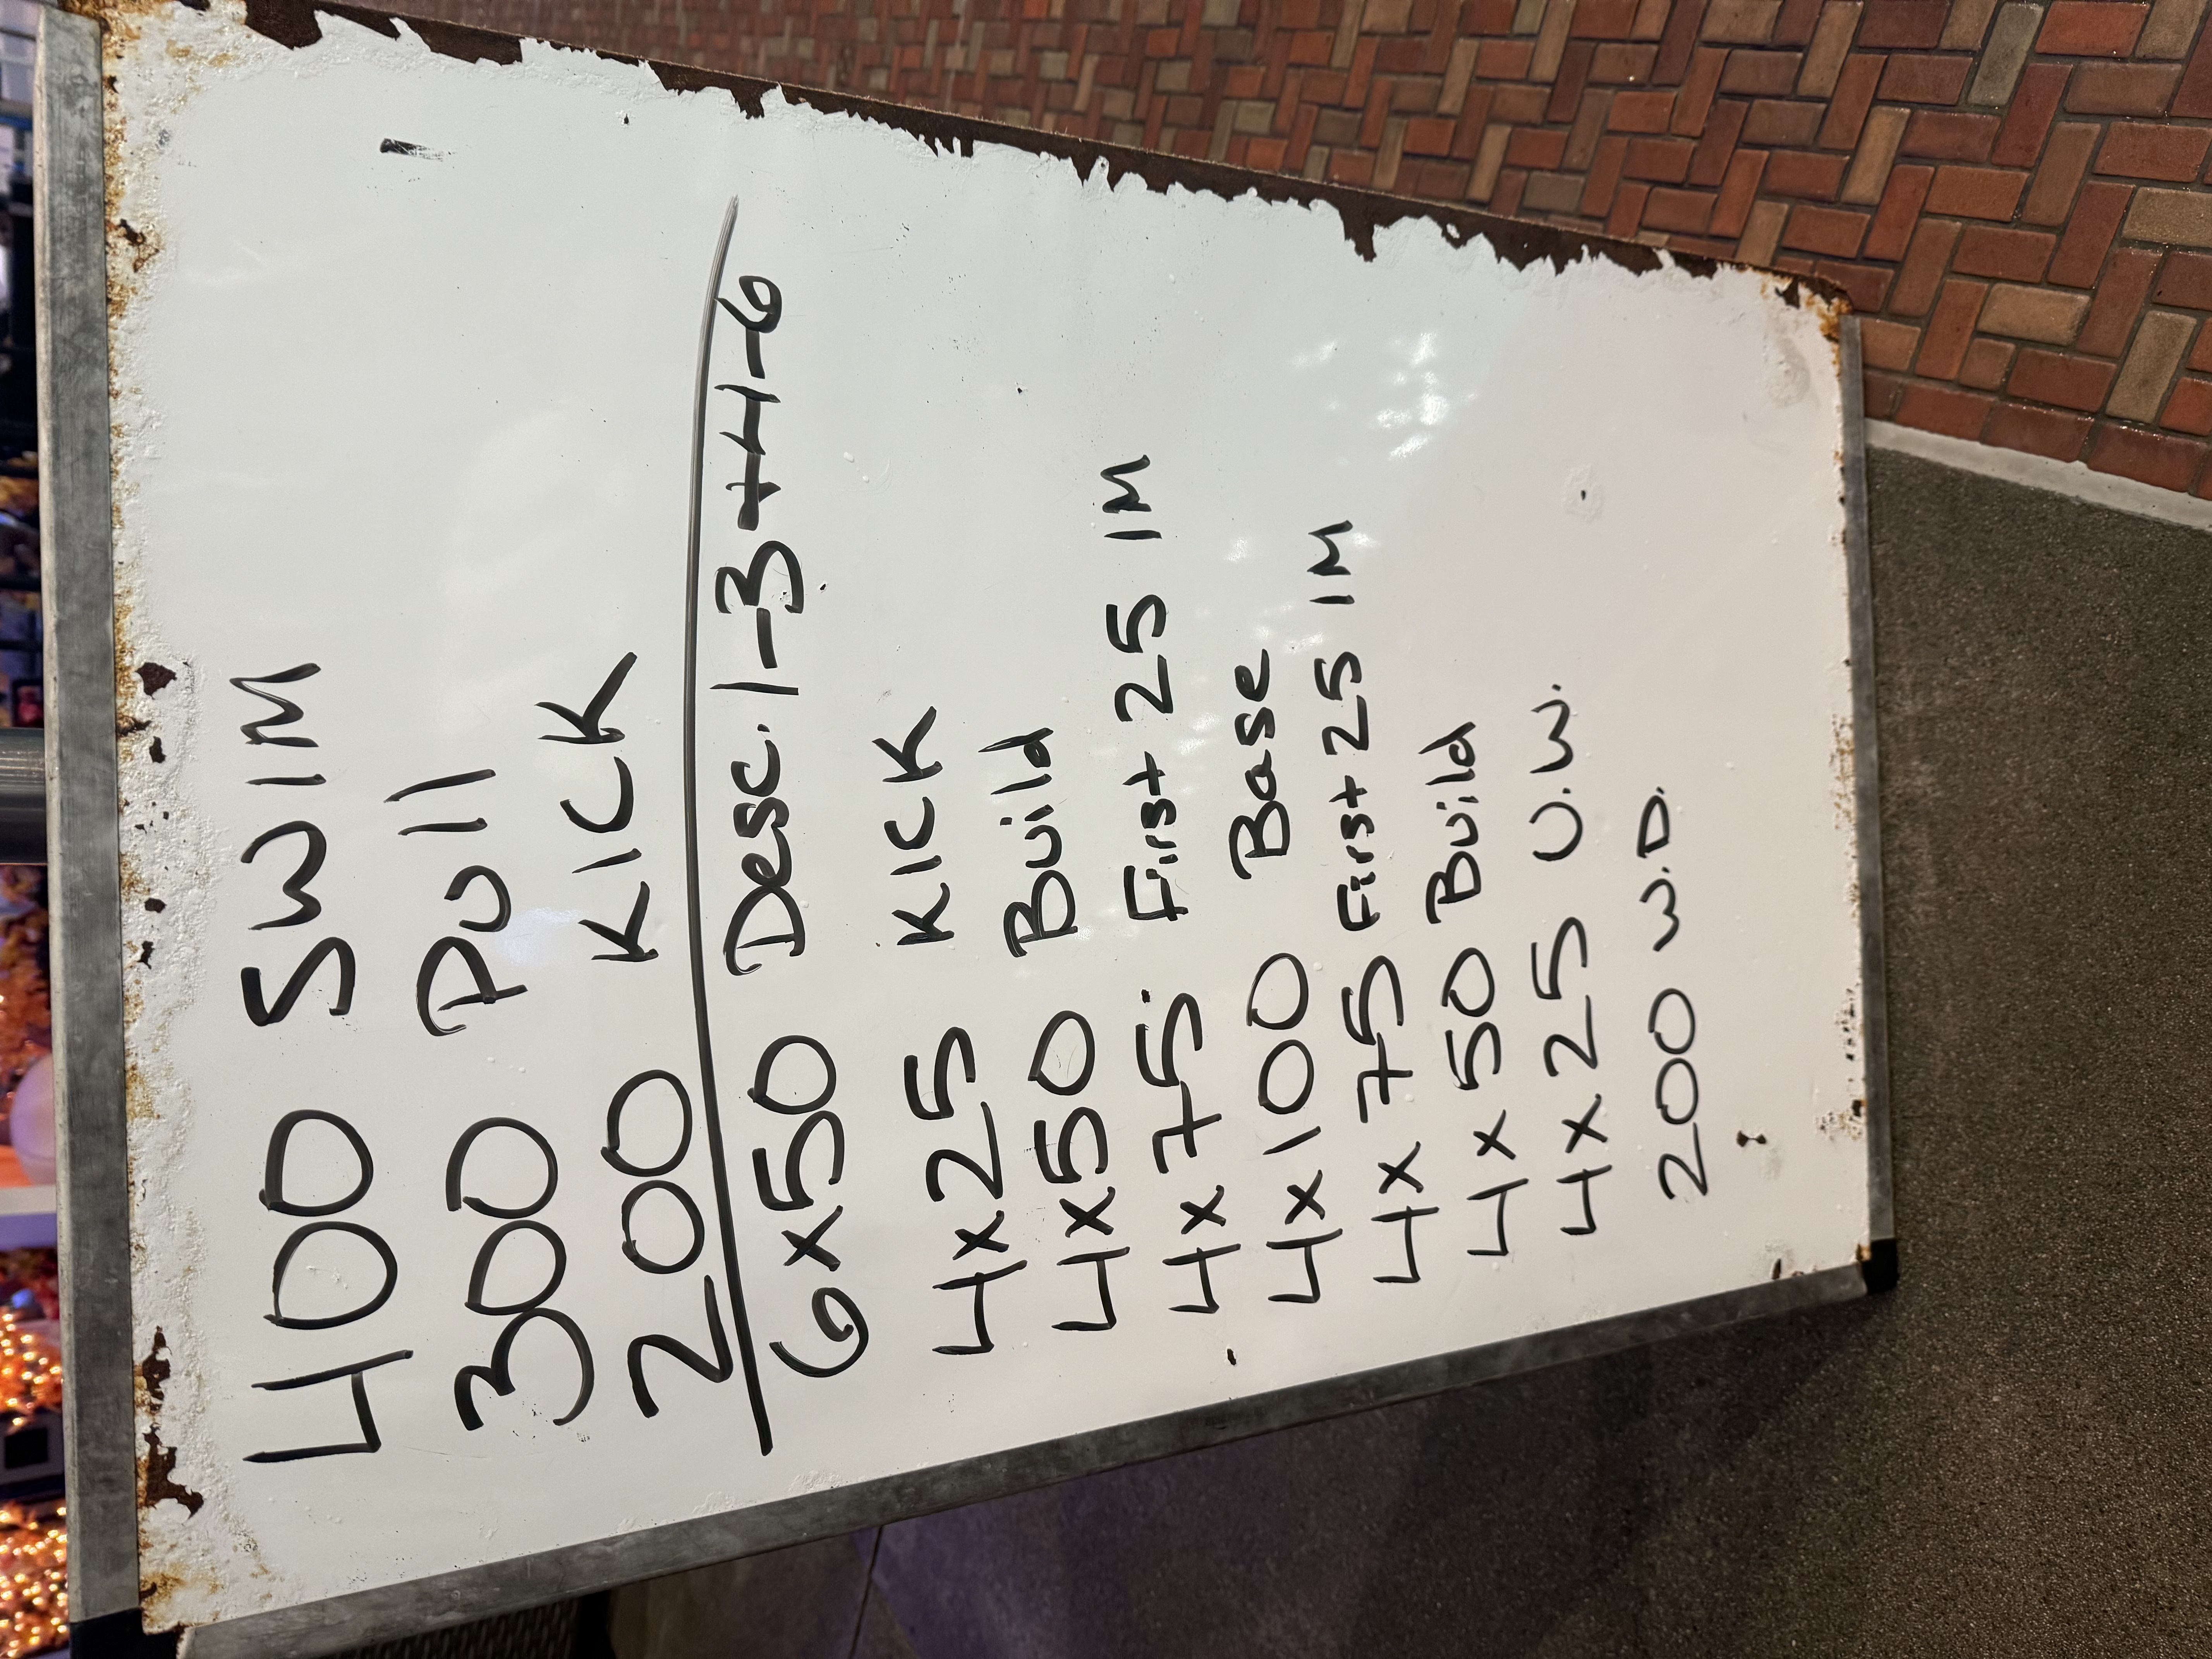 400 SWIM
300 Pull
200 KICK
6x50 Desc. 1-3+4-6
4x25 KICK
4x50 Build
4x75 First 25 IM
4x100 Base
4x75 First 25 IM
4x50 Build
4x25 U.W.
200 W.D.